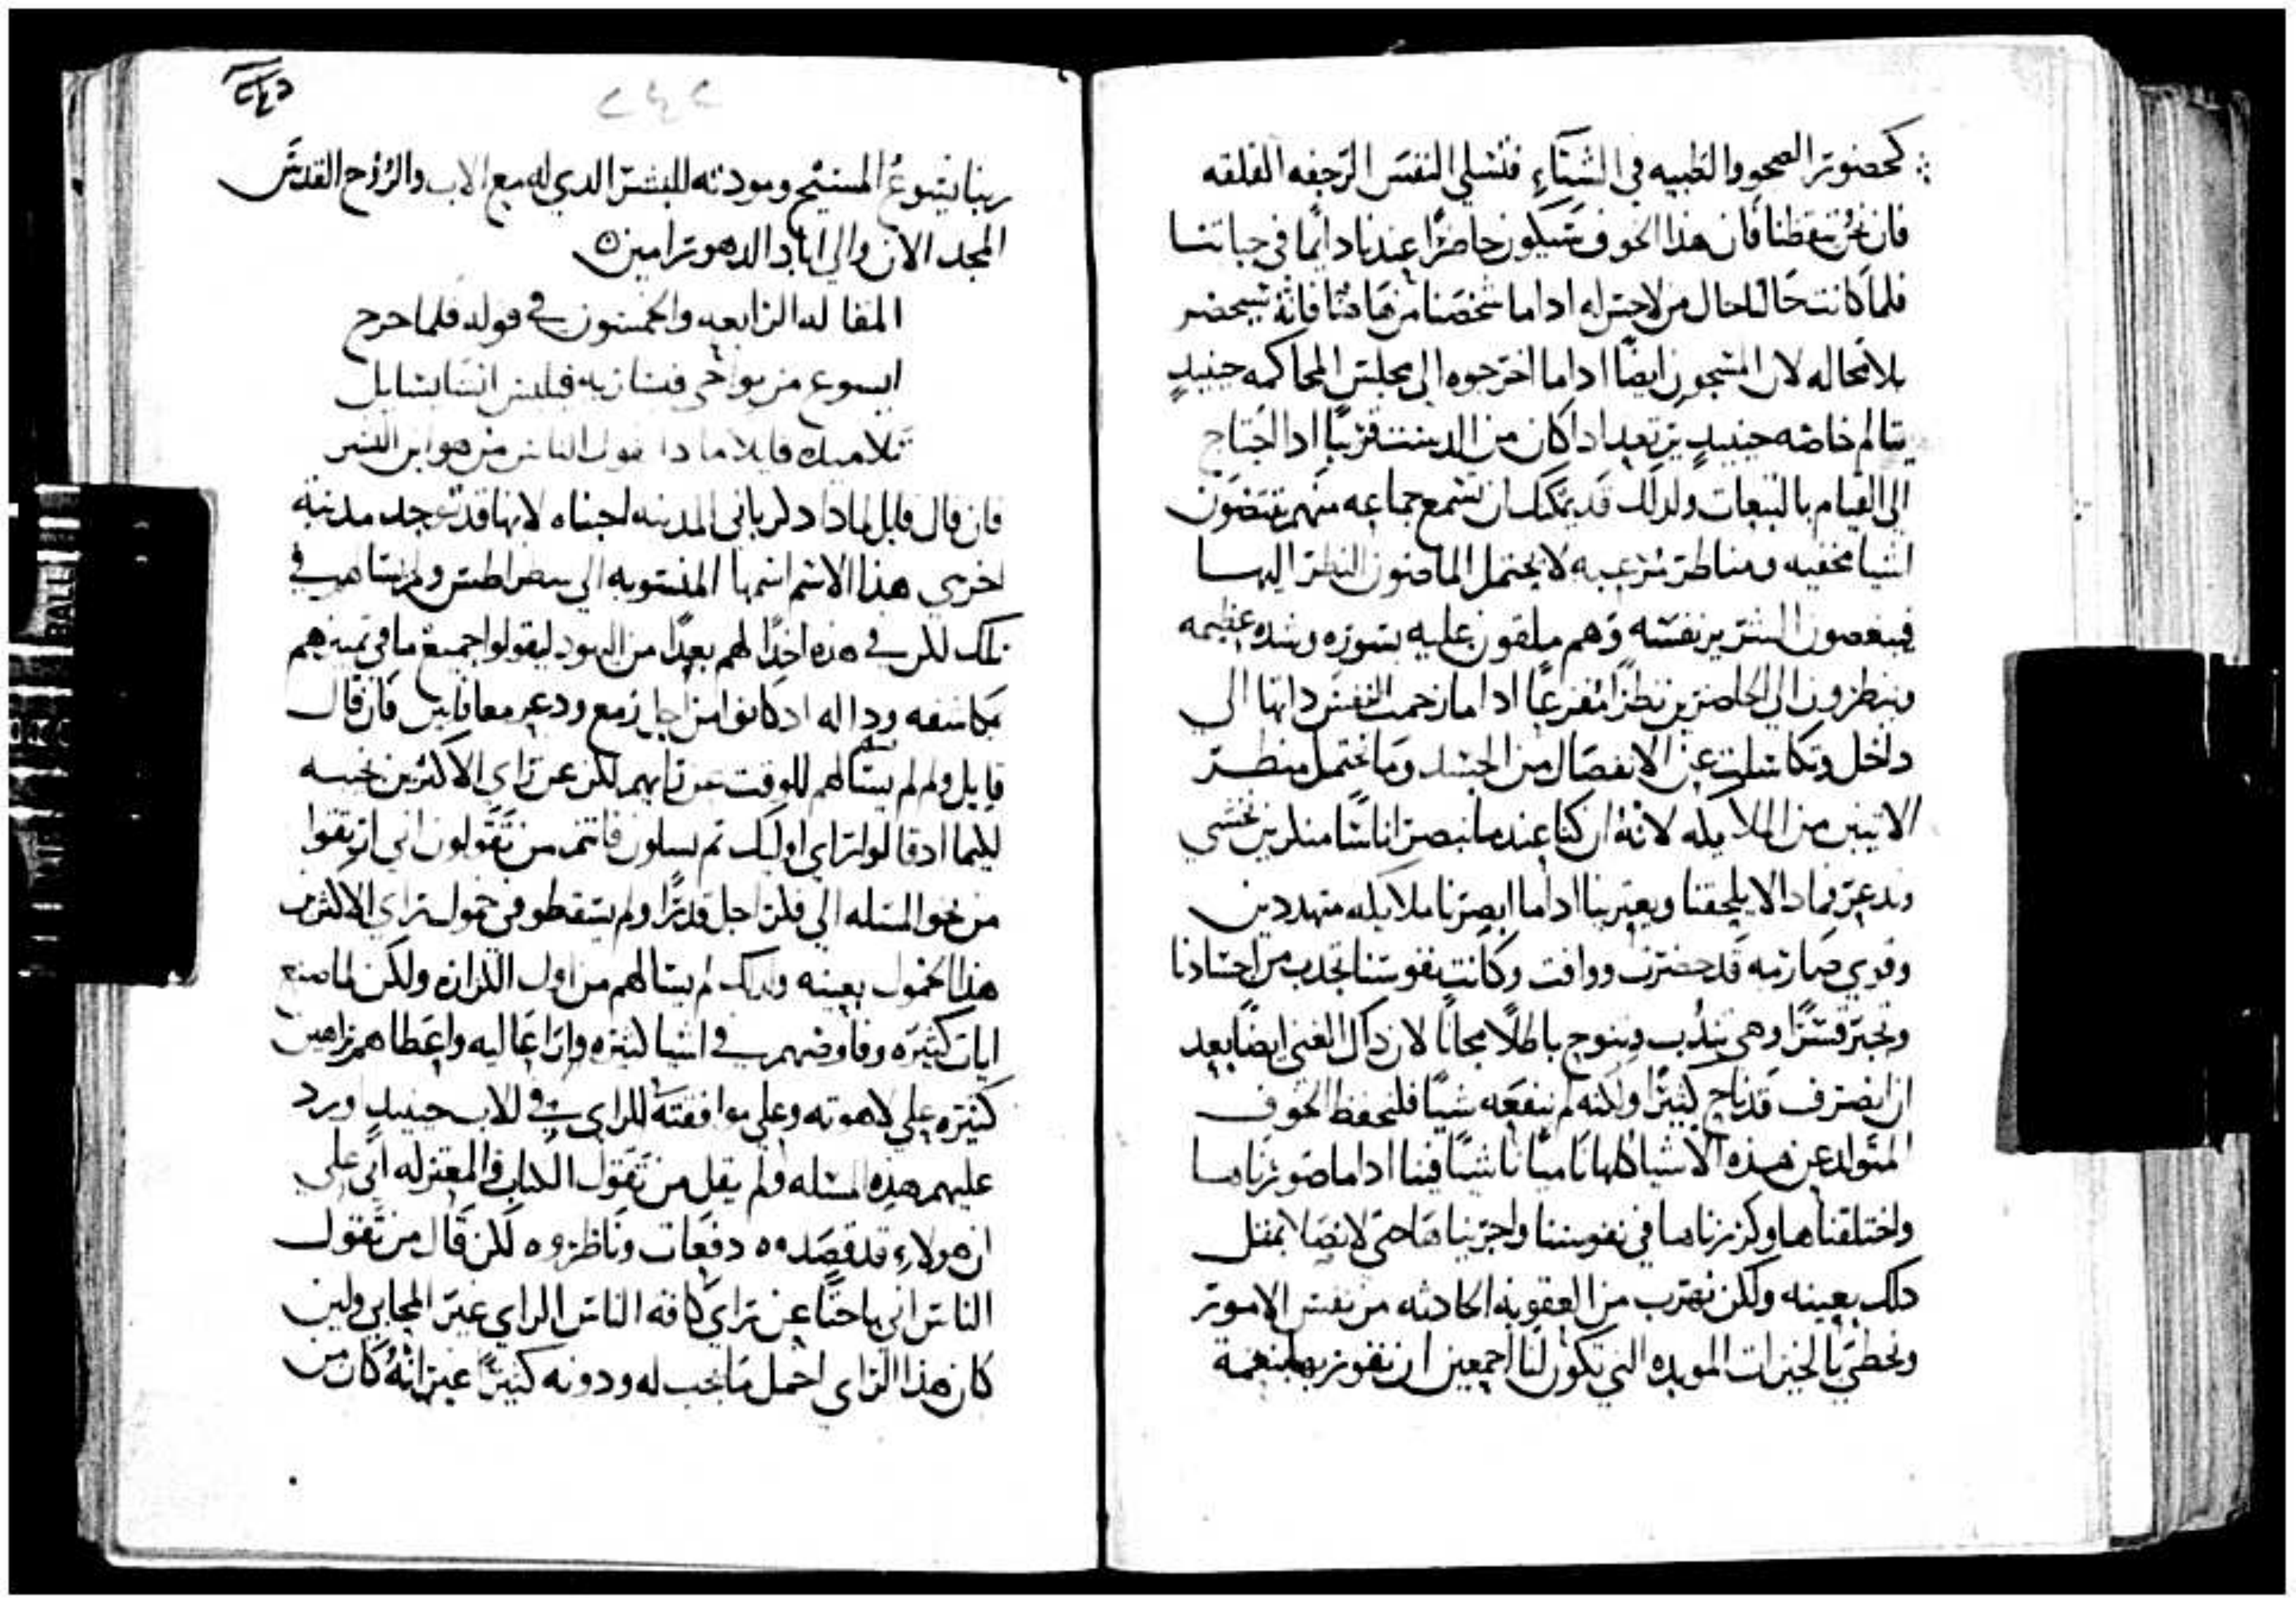 كحضور الصحو والطبيه في الشتاء فتسلي النفس الرجفه القلقه
فان نحن تيقظنا فان هذا الخوف سيكون حاضرًا عندنا دايمًا في حياتنا
فلما كانت حالنا حال من لاحس له اداما شخصنا من هاهنا فانه سيحضر
بلا محاله لان المسجون ايضًا اداما اخرجوه الى مجلس المحاكمه حينيدٍ
يتالم خاصه حينيدٍ يرتعد اداكان من الدينونه قريبًا ادا احتاج
الى القيام بالتبعات ولدلك قد يمكنك ان تسمع جماعه منهم يقتصون
اشيا مخفيه ومناظر مرعبه لا يحتمل الماضون النظر اليها
فينغصون السرير نفسه وهم ملقون عليه بسوره وشده عظيمه
وينظرون الى الحاضرين نظرًا مفزعًا اداما زحمت النفس داتها الى
داخل وتكاسلت عن الانفصال من الجسد وما تحتمل منظر
الاتيين من الملايكه لانه ان كنا عندما نبصر اناسًا منكرين نخشى
وندعر فمادا لا يلحقنا ويعترينا اداما ابصرنا ملايكه متهددين
وقوي صارمه قد حضرت ووافت وكانت نفوسنا تجدب من اجسادنا
وتجبر قسرًا وهي تندب وتنوح باطلًا مجانًا لان داك الغني ايضًا بعد
ان انصرف قد ناح كثيرًا ولكنه لم ينفعه شيًا فلنحفظ الخوف
المتولد عن هذه الاشيا كلها ناميًا ناشيًا فينا اداما صورناها
واختلقناها وكررناها في نفوسنا واجرينا هاحتى لانصلا بمثل
دلك بعينه ولكن نهرب من العقوبة الحادثه من نفس الامور
ونحظى بالخيرات الموبده التي تكون لنا اجمعين ان نفوز بها بنعمة
٢٤٢
ربنا يسوع المسيح ومودته للبشر الدي له مع الاب والروح القدس
المجد الان والى اباد الدهور امين ن
المقاله الرابعه والخمسون في قوله فلما خرج
ايسوع من نواحي قيسارية فيلبس انشا يسايل
تلاميده قايلًا مادا تقول الناس من هو ابن البشر
فان قال قايل لمادا دكر باني المدينه اجبناه لانها قد توجد مدينة
اخرى هذا الاسم اسمها المنسوبه الى سطراطس ولم يسالهم في
تلك لكن في هذه اخدًا لهم بعيدًا من اليهود ليقولوا جميع ما في تمييزهم
مكاشفه وداله ادكانوا من اجل زمع ودعر معافايين فان قال
قايل ولم لم يسالهم للوقت عن رايهم لكن عن راي الاكثرين نجيبه
ليلما ادقالوا راي اوليك تم يسلون فانتم من تقولون اني ارتقوا
من نحو المسله الى فكر اجل قدرًا ولم يسقطو في خمول راي الاكثرين
هذا الخمول بعينه ولدلك لم يسالهم من اول الكرازه ولكن لما صنع
ايات كثيره وفاوضهم في اشيا كثيره واراعاليه واعطاهم براهين
كثيره على لاهوته وعلى موافقته للراي في للاب حينيدٍ ورد
عليهم هذه المسله ولم يقل من تقول الكتاب والمعتزله اني على
ان هولاء قد قصدوه دفعات وناظروه لكن قال من تقول
الناس اني باحثًا عن راي كافة الناس الراي غير المحابي ولين
كان هذا الراي اخمل مايجب له ودونه كثيرًا غير انه كان من